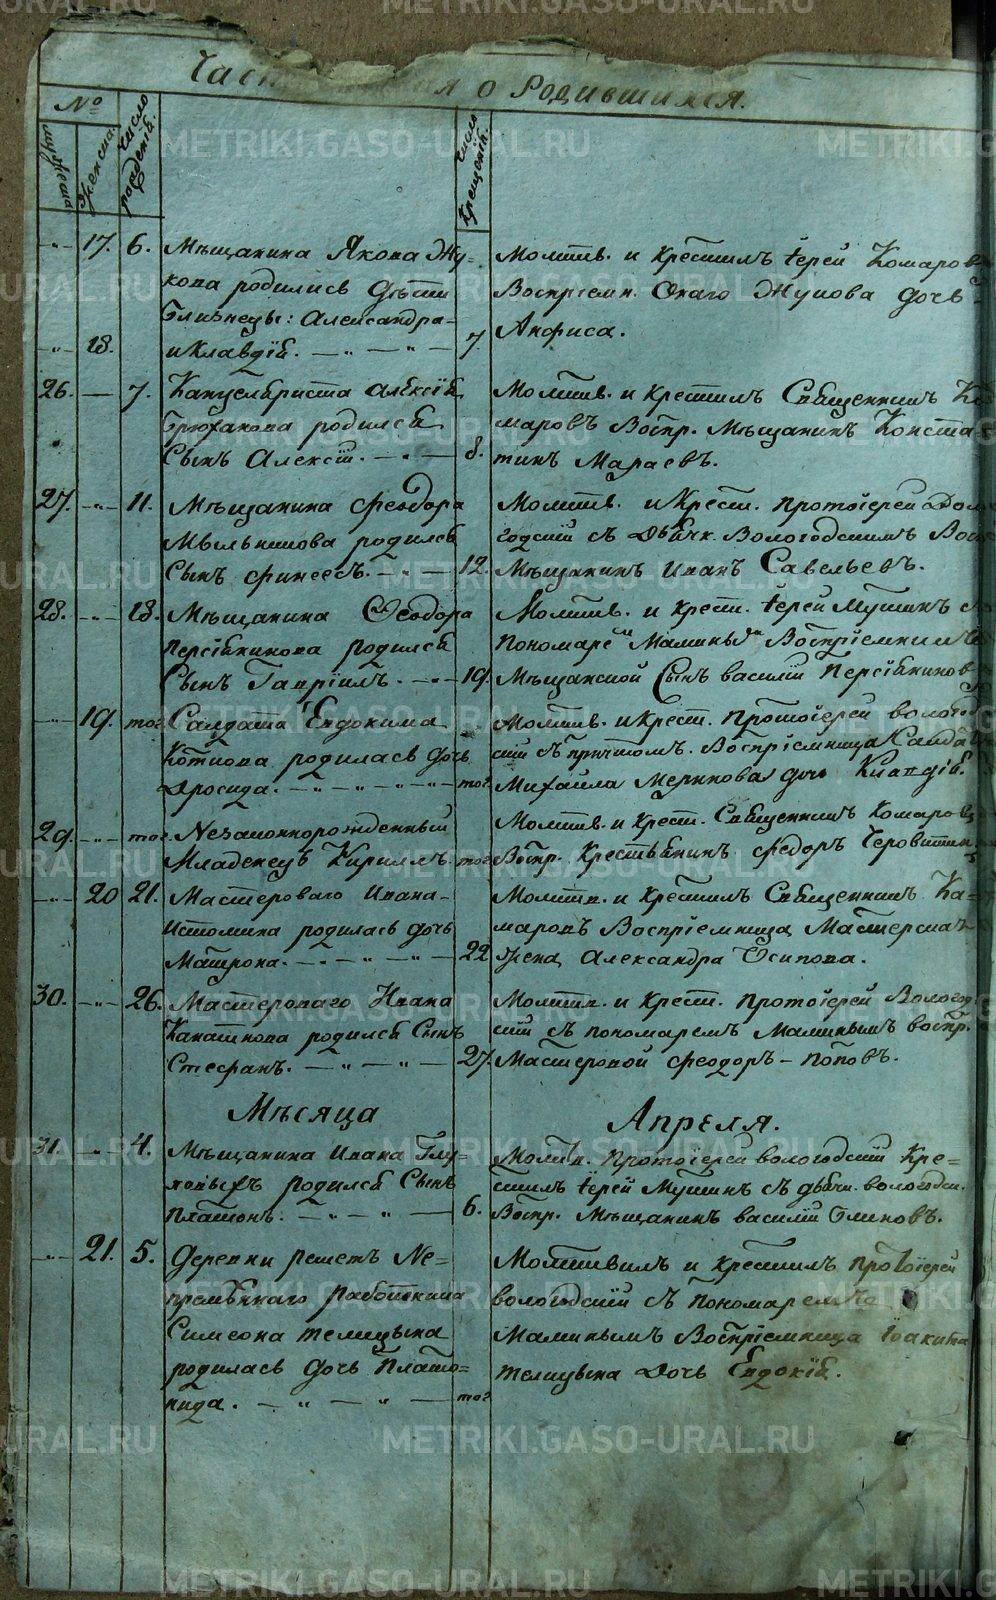 Часть о Родившихся.
№
мужеска
женска
Число рожденiй.
Число Крещенiй.
-"- 17. 6. Мѣщанина Якова Жу-
кова родились Дѣти
близнецы: Александра
-"- 18. и Клавдiя. 7.
Молитв. и крестилъ iерей Комаровъ
Воспрiемн. Онаго Жукова дочь
Анфиса.
26. — 7. Канцеляриста Алексѣя
Брюханова родился
Сынъ Алексiй. 8.
Молитв. и крестилъ Священникъ Ко
маровъ Воспр. Мѣщанинъ Конста
тинъ Мараевъ.
27. -"- 11. Мѣщанина Феодора
Мѣльникова родился
Сынъ Финеесъ. 12.
Молитв. и Крест. протоiерей Воло
годскiй съ Дьячк. Вологодскимъ Воспр
Мѣщанинъ Иванъ Савельевъ.
28. -"- 18. Мѣщанина Ѳеодора
Персiянинова родился
Сынъ Гаврiилъ. 19.
Молитв. и крест. iерей Мутинъ съ
пономаремъ Малинымъ Воспрiемникъ
Мѣщанской Сынъ Василiй Персiяниновъ
-"- 19. тог. Салдата Евдокима
Коткова родилась дочь
Дросида. тог.
Молитв. и Крест. Протоiерей Волого
скiй съ причтомъ. Воспрiемница Салда
Михаила Меркикова дочь Клавдiя.
29. -"- тог. Незаконнорожденный
Младенецъ Кириллъ. тог.
Молитв. и Крест. Священникъ Комаровъ
Воспр. Крестьянинъ Федоръ
-"- 20 21. Мастероваго Ивана
Истомина родилась дочь
Матрона. 22
Молитв. и крестилъ Священникъ Ка-
маровъ Воспрiемница Мастерска
жена Александра Осипова.
30. -"- 26. Мастероваго Ивана
Канаткова родился Сынъ
Стефанъ. 27.
Молитв. и Крест. протоiерей Вологод
скiй съ пономаремъ Малинымъ воспр.
Мастеровой Феодоръ Поповъ.
Мѣсяца Апреля.
31. -"- 4. Мѣщанина Ивана Глу-
родился Сынъ
Платонъ. 6.
Молитв. протоiерей вологодскiй Кре=
стилъ iерей Мутинъ съ дьячк. вологодск.
Воспр. Мѣщанинъ василiй Блиновъ.
-"- 21. 5. Деревни решетъ Не=
премѣннаго работника
Симеона телицына
родилась дочь Плато=
нида. тог.
Молитвилъ и крестилъ протоiерей
вологодскiй съ пономаремъ
Малинымъ Воспрiемница Iоакима
телицына Дочь Евдокiя.
METRIKI.GASO-URAL.RU